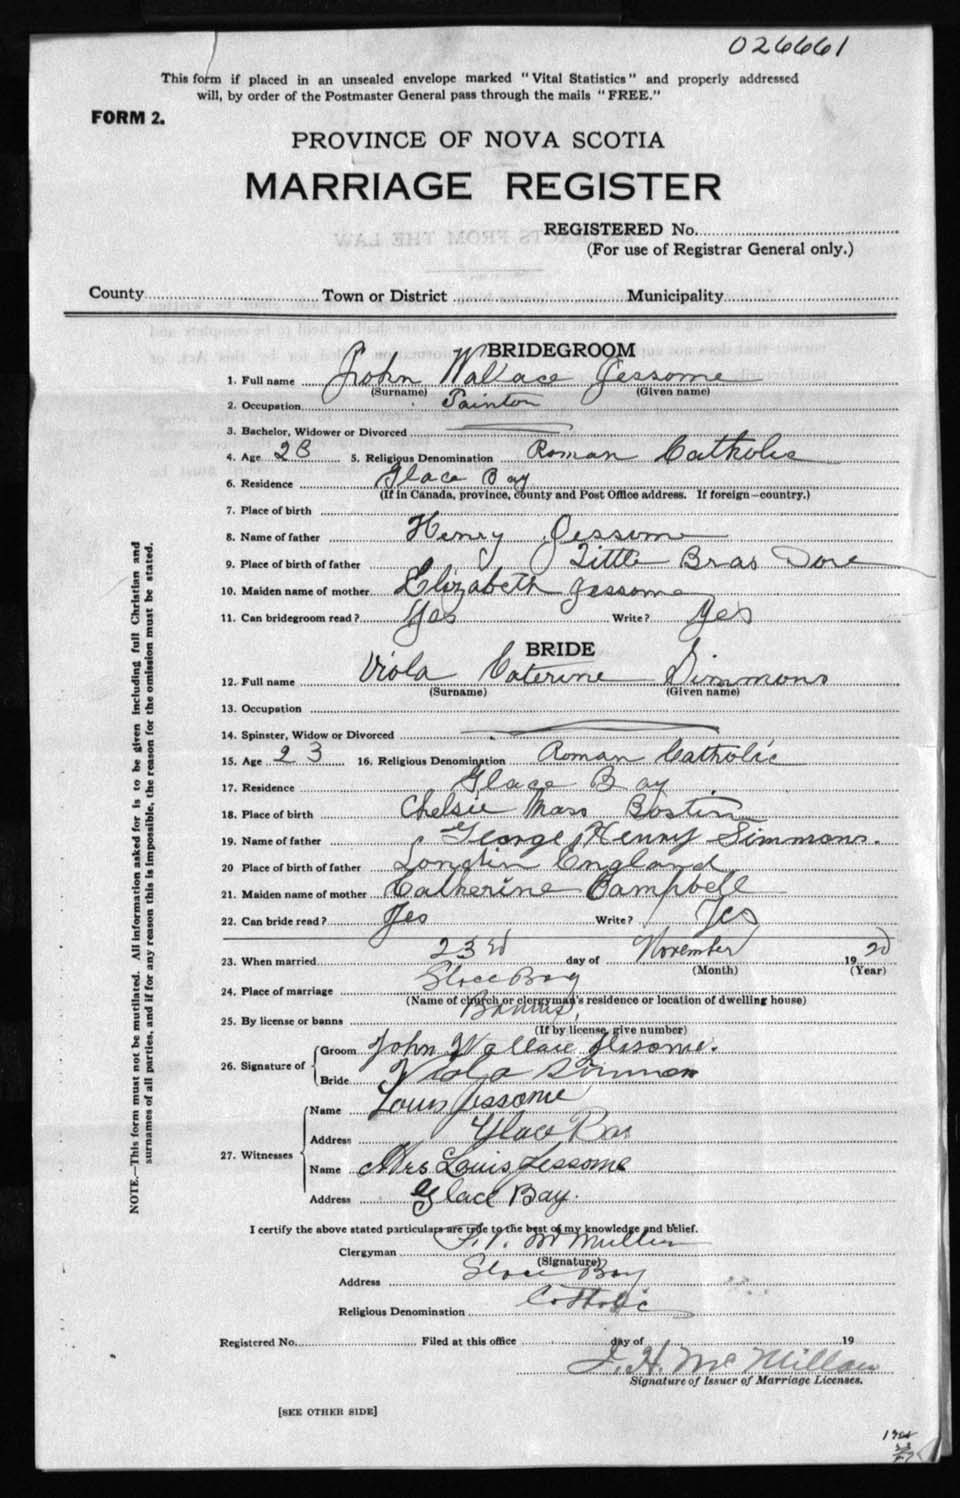 026661
This form if placed in an unsealed envelope marked "Vital Statistics" and properly addressed
will, by order of the Postmaster General pass through the mails "FREE."
FORM 2.
PROVINCE OF NOVA SCOTIA
MARRIAGE REGISTER
REGISTERED No.
(For use of Registrar General only.)
County Town or District Municipality
BRIDEGROOM
1. Full name John Wallace Jessome
(Surname) (Given name)
2. Occupation Paintor
3. Bachelor, Widower or Divorced
4. Age 28 5. Religious Denomination Roman Catholic
6. Residence Glace Bay
(If in Canada, province, county and Post Office address. If foreign—country.)
7. Place of birth
8. Name of father Henry Jessome
9. Place of birth of father Little Bras Dore
10. Maiden name of mother Elizabeth Jessome
11. Can bridegroom read? Yes Write? Yes
BRIDE
12. Full name Viola Caterine Simmons
(Surname) (Given name)
13. Occupation
14. Spinster, Widow or Divorced
15. Age 23 16. Religious Denomination Roman Catholic
17. Residence Glace Bay
18. Place of birth Chelsie Mass Bostin
19. Name of father George Henry Simmons.
20 Place of birth of father England
21. Maiden name of mother Catherine Campbell
22. Can bride read? Yes Write? Yes
23. When married 23rd day of November 1920
(Month) (Year)
24. Place of marriage Glace Bay
(Name of church or clergyman's residence or location of dwelling house)
25. By license or banns Banns,
(If by license, give number)
26. Signature of Groom John Wallace Jessome.
Bride Viola Simmons
27. Witnesses Name Louis Jessome
Address Glace Bay
Name Mrs Louis Jessome
Address Glace Bay.
I certify the above stated particulars are true to the best of my knowledge and belief.
Clergyman McMullin
(Signature)
Address Glace Bay
Religious Denomination Catholic
Registered No. Filed at this office day of 19
J. H. McMillan
Signature of Issuer of Marriage Licenses.
[SEE OTHER SIDE]
NOTE.—This form must not be mutilated. All information asked for is to be given including full Christian and
surnames of all parties, and if for any reason this is impossible, the reason for the omission must be stated.